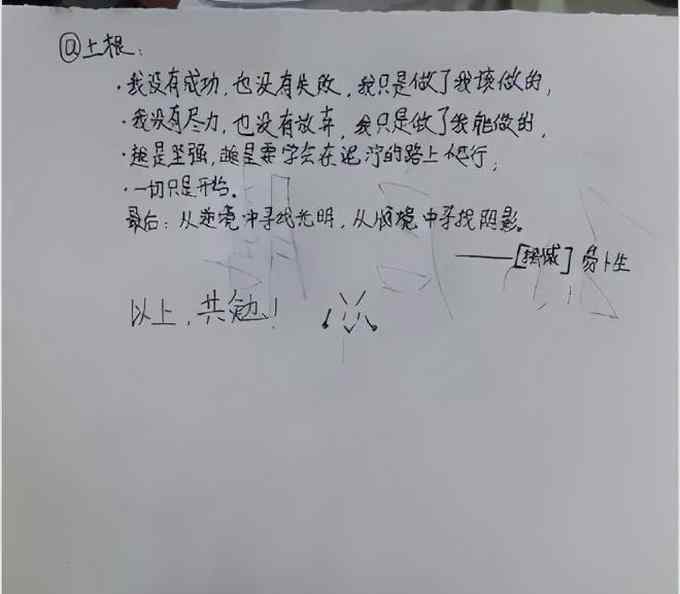 @上根：
·我没有成功，也没有失败，我只是做了我该做的，
·我没有尽力，也没有放弃，我只是做了我能做的，
·越是坚强，越是要学会在泥泞的路上爬行；
·一切只是开始。
最后：从逆境中寻找光明，从顺境中寻找阴影。
——[挪威] 易卜生
以上，共勉！